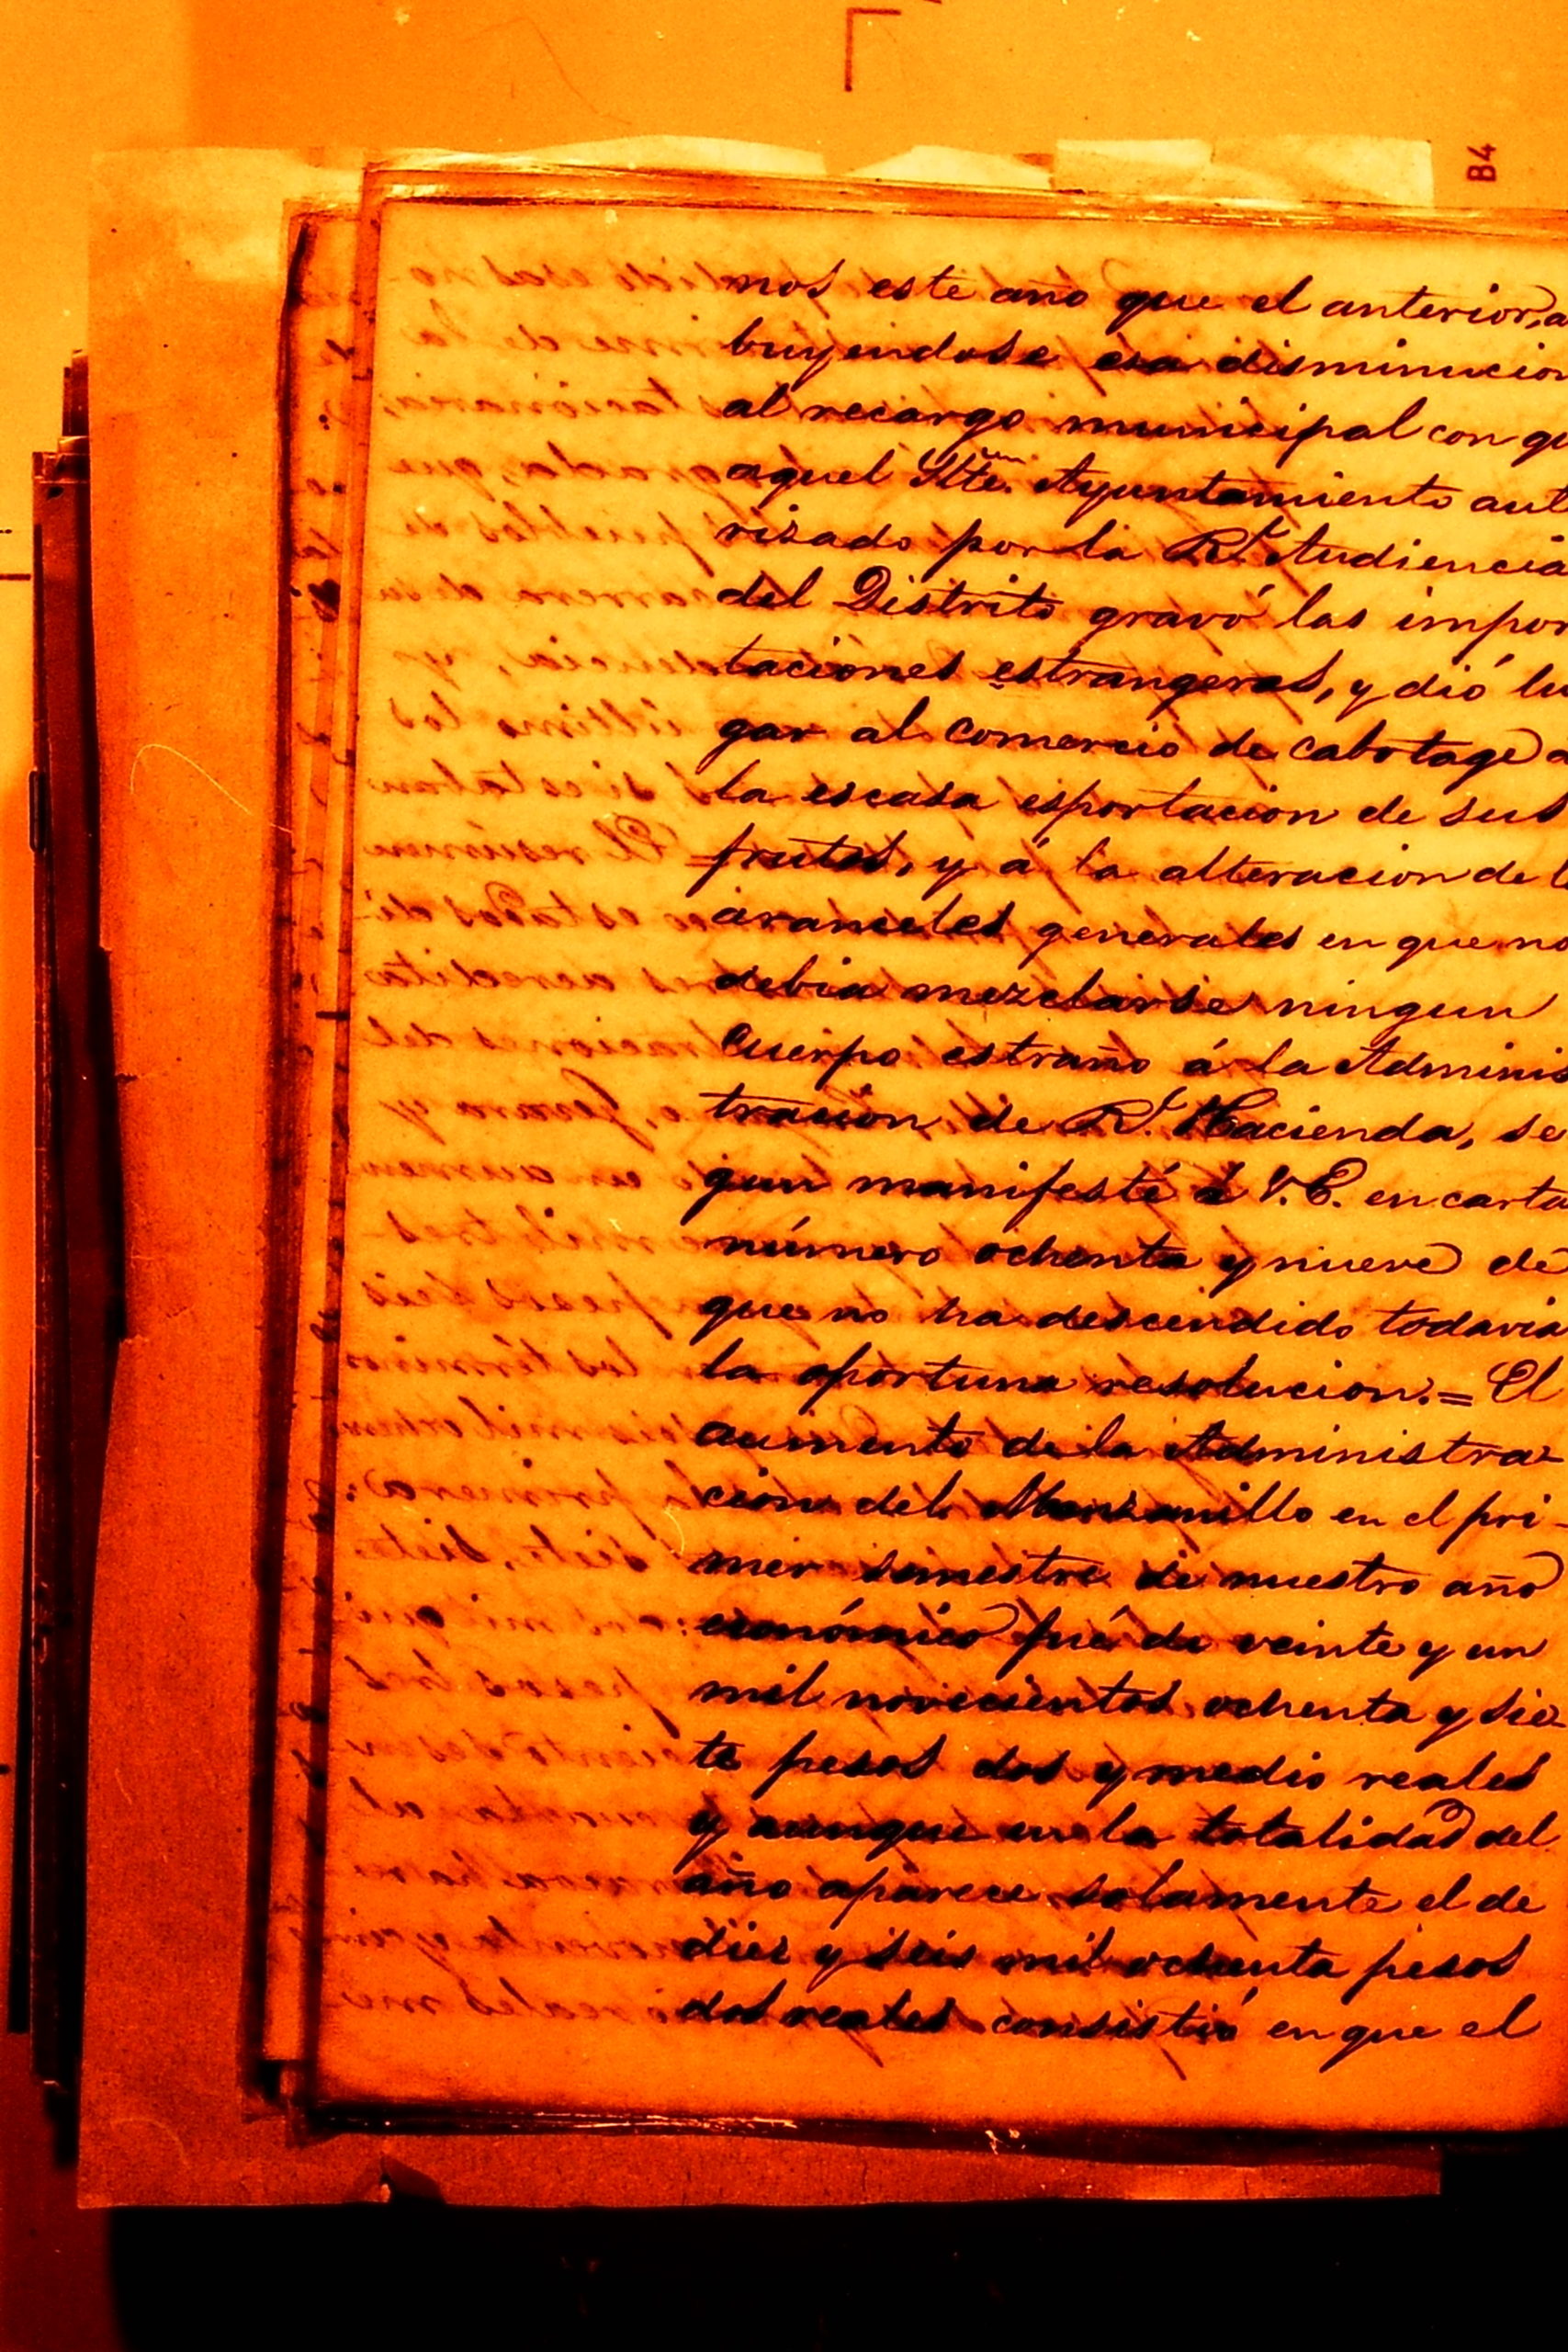 B4
nos este año que el anterior, a
buyendose esa disminucion
al recargo municipal con qu
aquel Ylte. Ayuntamiento aut
rizado por la Rl. Audiencia
del Distrito gravó las impor
taciones estrangeras, y dió lu
gar al comercio de cabotage a
la escasa esportacion de sus
frutos, y á la alteracion de l
aranceles generales en que no
debia mezclarse ningun
cuerpo estraño á la Adminis
tracion de Rl. Hacienda, se
gun manifesté á V.E. en carta
número ochenta y nueve de
que no ha descendido todavia
la oportuna resolucion.= El
aumento de la Administra-
cion del Manzanillo en el pri-
mer semestre de nuestro año
económico fué de veinte y un
mil novecientos ochenta y sie
te pesos dos y medio reales
y aunque en la totalidad del
año aparece solamente el de
diez y seis mil ochenta pesos
dos reales consistió en que el